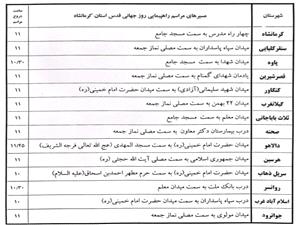 شهرستان مسیرهای مراسم راهپیمایی روز جهانی قدس استان کرمانشاه ساعت شروع مراسم
کرمانشاه چهار راه مدرس به سمت مسجد جامع ۱۱
سنقرکلیایی میدان سپاه پاسداران به سمت مصلی نماز جمعه ۱۱
پاوه میدان شهدا به سمت مسجد جامع ۱۰/۳۰
قصرشیرین یادمان شهدای گمنام به سمت مصلی نماز جمعه ۱۱
کنگاور میدان شهید سلیمانی(آزادی) به سمت میدان حضرت امام خمینی(ره) ۱۱
گیلانغرب میدان ۲۲ بهمن به سمت مصلی نماز جمعه ۱۱
ثلاث باباجانی میدان معلم به سمت مسجد جامع ۱۱
صحنه درب بیمارستان دکتر معاون به سمت مصلی نماز جمعه ۱۱
دالاهو میدان حضرت امام خمینی(ره) به سمت مسجد المهدی (عج الله تعالی فرجه الشریف) ۱۱/۴۵
هرسین میدان جمهوری اسلامی به سمت مصلی آیت الله حجتی (ره) ۱۱
سرپل ذهاب میدان حضرت امام خمینی(ره) به سمت حرم مطهر احمدبن اسحاق(علیه السلام) ۱۰
روانسر درب بانک ملت به سمت میدان معلم ۱۰/۳۰
اسلام آباد غرب درب سپاه پاسداران به سمت میدان حضرت امام خمینی(ره) ۱۰
جوانرود میدان مولوی به سمت مصلی نماز جمعه ۱۱